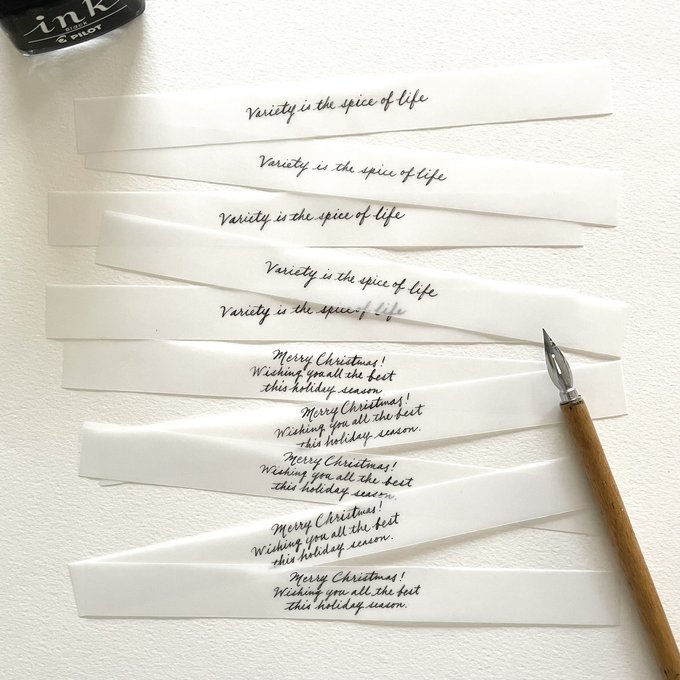 ink
BLACK
PILOT
Variety is the spice of life
Variety is the spice of life
Variety is the spice of life
Variety is the spice of life
Variety is the spice of life
Merry Christmas!
Wishing you all the best
this holiday season
Merry Christmas!
Wishing you all the best
this holiday season.
Merry Christmas!
Wishing you all the best
this holiday season.
Merry Christmas!
Wishing you all the best
this holiday season.
Merry Christmas!
Wishing you all the best
this holiday season.